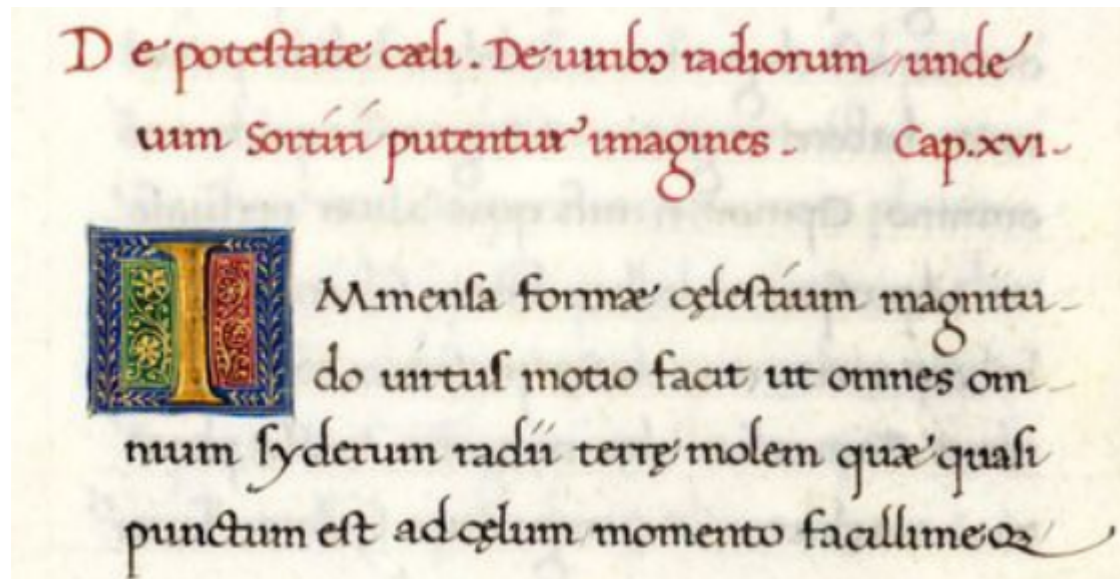 De potestate cæli. De uiribꝯ radiorum unde
uim Sortiri putentur imagines. Cap. XVI.
IMmensa formæ cęlestium magnitu
do uirtus motio facit ut omnes om
nium syderum radii terrę molem quæ quasi
punctum est ad cęlum momento facillimeQꝫ